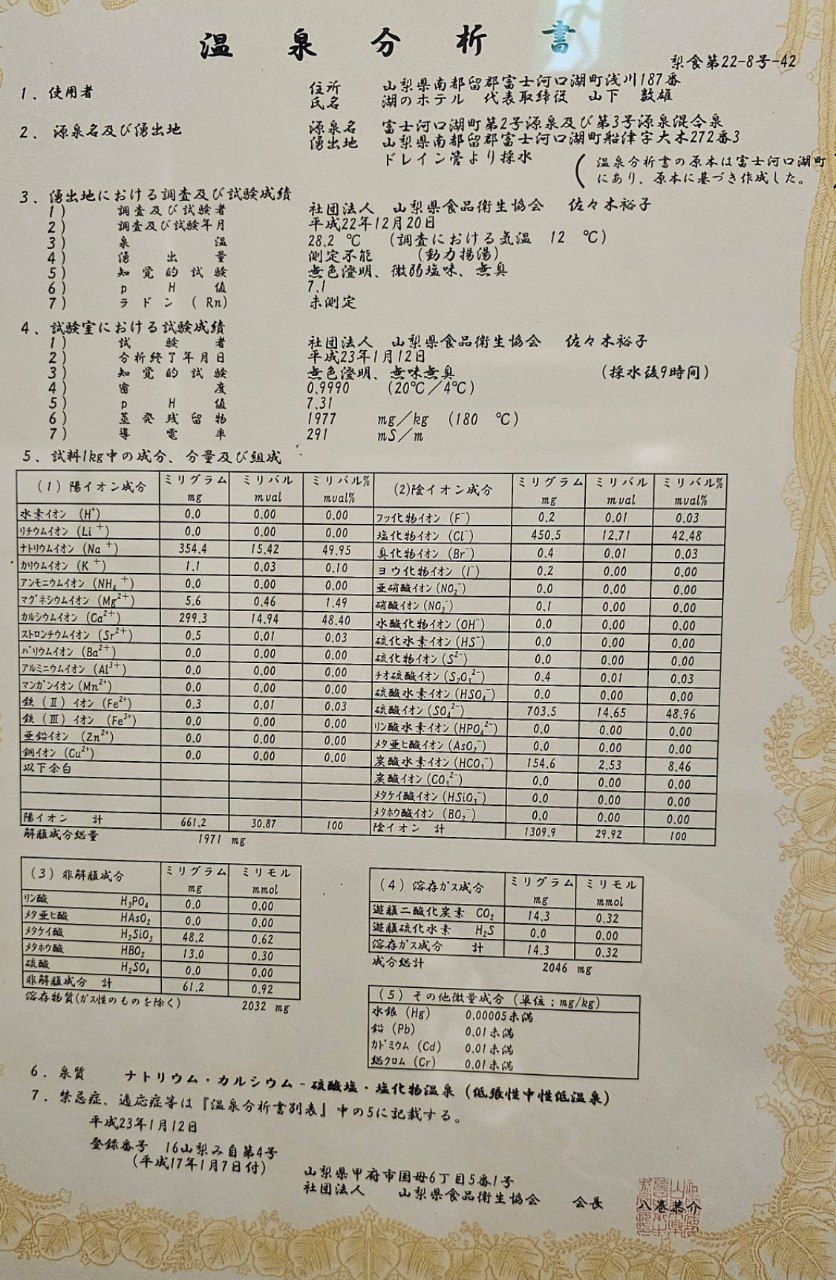 温泉分析書
梨食第22-8号-42
1．使用者 住所 山梨県南都留郡富士河口湖町浅川187番
氏名 湖のホテル 代表取締役 山下 数雄
2．源泉名及び湧出地 源泉名 富士河口湖町第2号源泉及び第3号源泉混合泉
湧出地 山梨県南都留郡富士河口湖町船津字大木272番3
ドレイン管より採水
（温泉分析書の原本は富士河口湖町
にあり、原本に基づき作成した。
3．湧出地における調査及び試験成績
1） 調査及び試験者 社団法人 山梨県食品衛生協会 佐々木裕子
2） 調査及び試験年月 平成22年12月20日
3） 泉温 28.2 ℃ （調査における気温 12 ℃）
4） 湧出量 測定不能 （動力揚湯）
5） 知覚的試験 無色澄明、微弱塩味、無臭
6） pH値 7.1
7） ラドン（Rn） 未測定
4．試験室における試験成績
1） 試験者 社団法人 山梨県食品衛生協会 佐々木裕子
2） 分析終了年月日 平成23年1月12日
3） 知覚的試験 無色澄明、無味無臭 （採水後9時間）
4） 密度 0.9990 （20℃／4℃）
5） pH値 7.31
6） 蒸発残留物 1977 mg／kg （180 ℃）
7） 導電率 291 mS／m
5．試料1kg中の成分、分量及び組成
（1）陽イオン成分 ミリグラム mg ミリバル mval ミリバル% mval%
水素イオン（H⁺） 0.0 0.00 0.00
リチウムイオン（Li⁺） 0.0 0.00 0.00
ナトリウムイオン（Na⁺） 354.4 15.42 49.95
カリウムイオン（K⁺） 1.1 0.03 0.10
アンモニウムイオン（NH₄⁺） 0.0 0.00 0.00
マグネシウムイオン（Mg²⁺） 5.6 0.46 1.49
カルシウムイオン（Ca²⁺） 299.3 14.94 48.40
ストロンチウムイオン（Sr²⁺） 0.5 0.01 0.03
バリウムイオン（Ba²⁺） 0.0 0.00 0.00
アルミニウムイオン（Al³⁺） 0.0 0.00 0.00
マンガンイオン（Mn²⁺） 0.0 0.00 0.00
鉄（Ⅱ）イオン（Fe²⁺） 0.3 0.01 0.03
鉄（Ⅲ）イオン（Fe²⁺） 0.0 0.00 0.00
亜鉛イオン（Zn²⁺） 0.0 0.00 0.00
銅イオン（Cu²⁺） 0.0 0.00 0.00
以下余白
陽イオン 計 661.2 30.87 100
解離成分総量 1971 mg
（2）陰イオン成分 ミリグラム mg ミリバル mval ミリバル% mval%
フッ化物イオン（F⁻） 0.2 0.01 0.03
塩化物イオン（Cl⁻） 450.5 12.71 42.48
臭化物イオン（Br⁻） 0.4 0.01 0.03
ヨウ化物イオン（I⁻） 0.2 0.00 0.00
亜硝酸イオン（NO₂⁻） 0.0 0.00 0.00
硝酸イオン（NO₃⁻） 0.1 0.00 0.00
水酸化物イオン（OH⁻） 0.0 0.00 0.00
硫化水素イオン（HS⁻） 0.0 0.00 0.00
硫化物イオン（S²⁻） 0.0 0.00 0.00
チオ硫酸イオン（S₂O₃²⁻） 0.4 0.01 0.03
硫酸水素イオン（HSO₄⁻） 0.0 0.00 0.00
硫酸イオン（SO₄²⁻） 703.5 14.65 48.96
リン酸水素イオン（HPO₄²⁻） 0.0 0.00 0.00
メタ亜ヒ酸イオン（AsO₂⁻） 0.0 0.00 0.00
炭酸水素イオン（HCO₃⁻） 154.6 2.53 8.46
炭酸イオン（CO₃²⁻） 0.0 0.00 0.00
メタケイ酸イオン（HSiO₃⁻） 0.0 0.00 0.00
メタホウ酸イオン（BO₂⁻） 0.0 0.00 0.00
陰イオン 計 1309.9 29.92 100
（3）非解離成分 ミリグラム mg ミリモル mmol
リン酸 H₃PO₄ 0.0 0.00
メタ亜ヒ酸 HAsO₂ 0.0 0.00
メタケイ酸 H₂SiO₃ 48.2 0.62
メタホウ酸 HBO₂ 13.0 0.30
硫酸 H₂SO₄ 0.0 0.00
非解離成分 計 61.2 0.92
溶存物質（ガス性のものを除く） 2032 mg
（4）溶存ガス成分 ミリグラム mg ミリモル mmol
遊離二酸化炭素 CO₂ 14.3 0.32
遊離硫化水素 H₂S 0.0 0.00
溶存ガス成分 計 14.3 0.32
成分総計 2046 mg
（5）その他微量成分（単位；mg/kg）
水銀（Hg） 0.00005未満
鉛（Pb） 0.01未満
カドミウム（Cd） 0.01未満
総クロム（Cr） 0.01未満
6．泉質 ナトリウム・カルシウム－硫酸塩・塩化物温泉（低張性中性低温泉）
7．禁忌症、適応症等は『温泉分析書別表』中の5に記載する。
平成23年1月12日
登録番号 16山梨み自第4号
（平成17年1月7日付）
山梨県甲府市国母6丁目5番1号
社団法人 山梨県食品衛生協会 会長 八巻恭介